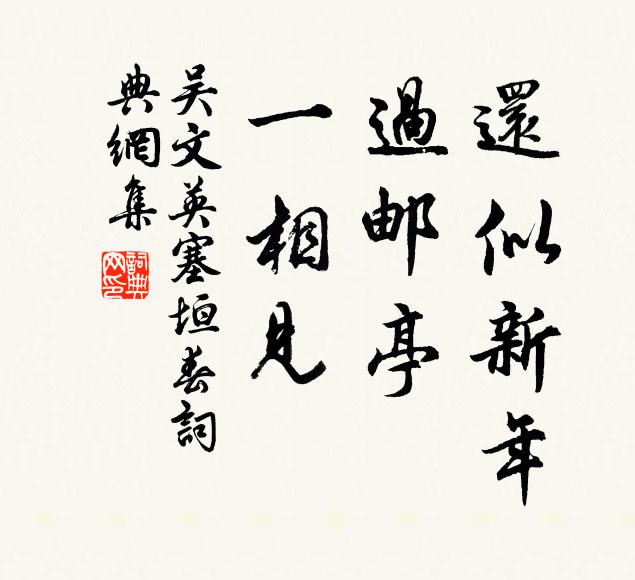 還似新年
過邮亭
一相見
吴文英塞垣春詞
典網集
詞典網印